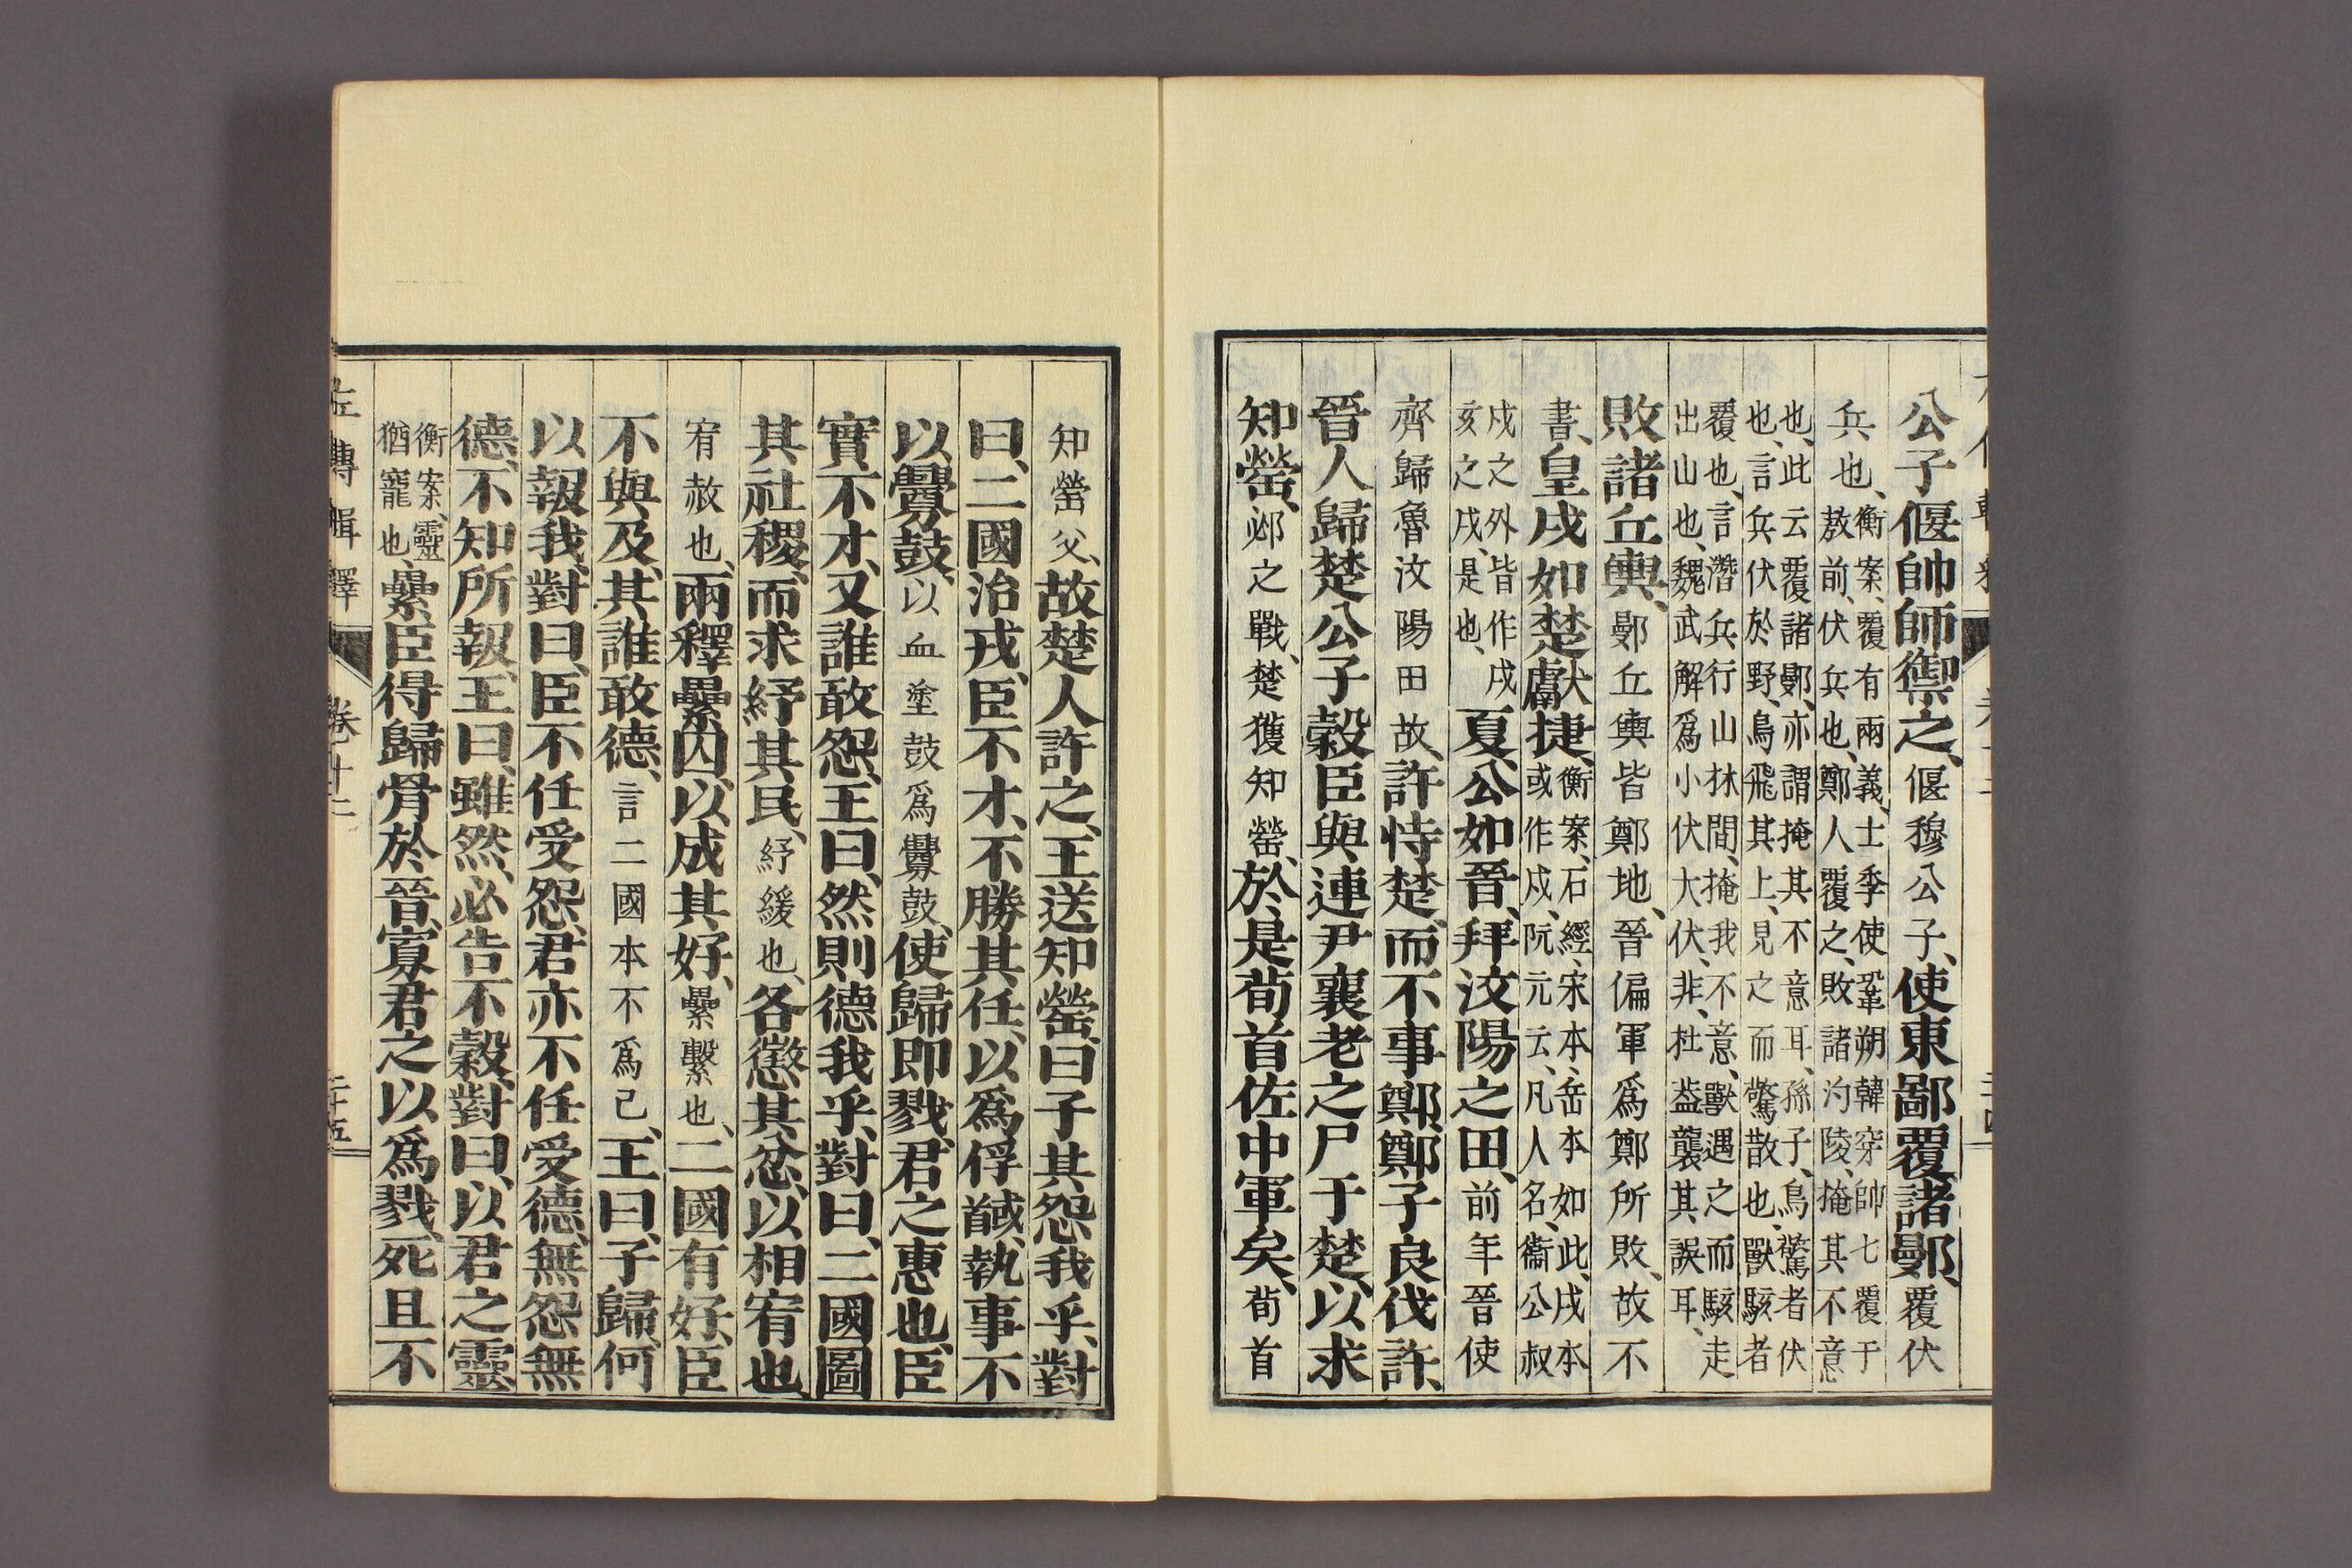 公子偃帥師禦之、偃穆公子、使東鄙覆諸鄤、覆伏
兵也、衡案、覆有兩義、士季使鞏朔韓穿帥七覆于
敖前、伏兵也、鄭人覆之、敗諸汋陵、掩其不意
也、此云覆諸鄤、亦謂掩其不意耳、孫子、鳥驚者伏
也、言兵伏於野、鳥飛其上、見之而驚散也、獸駭者
覆也、言潛兵行山林間、掩我不意、獸遇之而駭走
出山也、魏武解爲小伏大伏、非、杜葢襲其誤耳、
敗諸丘輿、鄤丘輿皆鄭地、晉偏軍爲鄭所敗、故不
書、皇戌如楚獻捷、衡案、石經、宋本、岳本如此、戌本
或作戍、阮元云、凡人名、衞公叔
戍之外皆作戌
亥之戌、是也、夏、公如晉、拜汶陽之田、前年晉使
齊歸魯汶陽田故、許恃楚、而不事鄭、鄭子良伐許、
晉人歸楚公子穀臣與連尹襄老之尸于楚、以求
知罃、邲之戰、楚獲知罃、於是荀首佐中軍矣、荀首
知罃父、故楚人許之、王送知罃、曰子其怨我乎、對
曰、二國治戎、臣不才、不勝其任、以爲俘馘、執事不
以釁鼓、以血塗鼓爲釁鼓、使歸即戮、君之惠也、臣
實不才、又誰敢怨、王曰、然則德我乎、對曰、二國圖
其社稷、而求紓其民、紓緩也、各懲其忿、以相宥也
宥赦也、兩釋纍囚、以成其好、纍繫也、二國有好、臣
不與及、其誰敢德、言二國本不爲己、王曰、子歸、何
以報我、對曰、臣不任受怨、君亦不任受德、無怨無
德、不知所報、王曰、雖然、必告不穀、對曰、以君之靈
衡案、靈
猶寵也、纍臣得歸骨於晉、寡君之以爲戮、死且不
左傳輯釋 卷十二 二十五